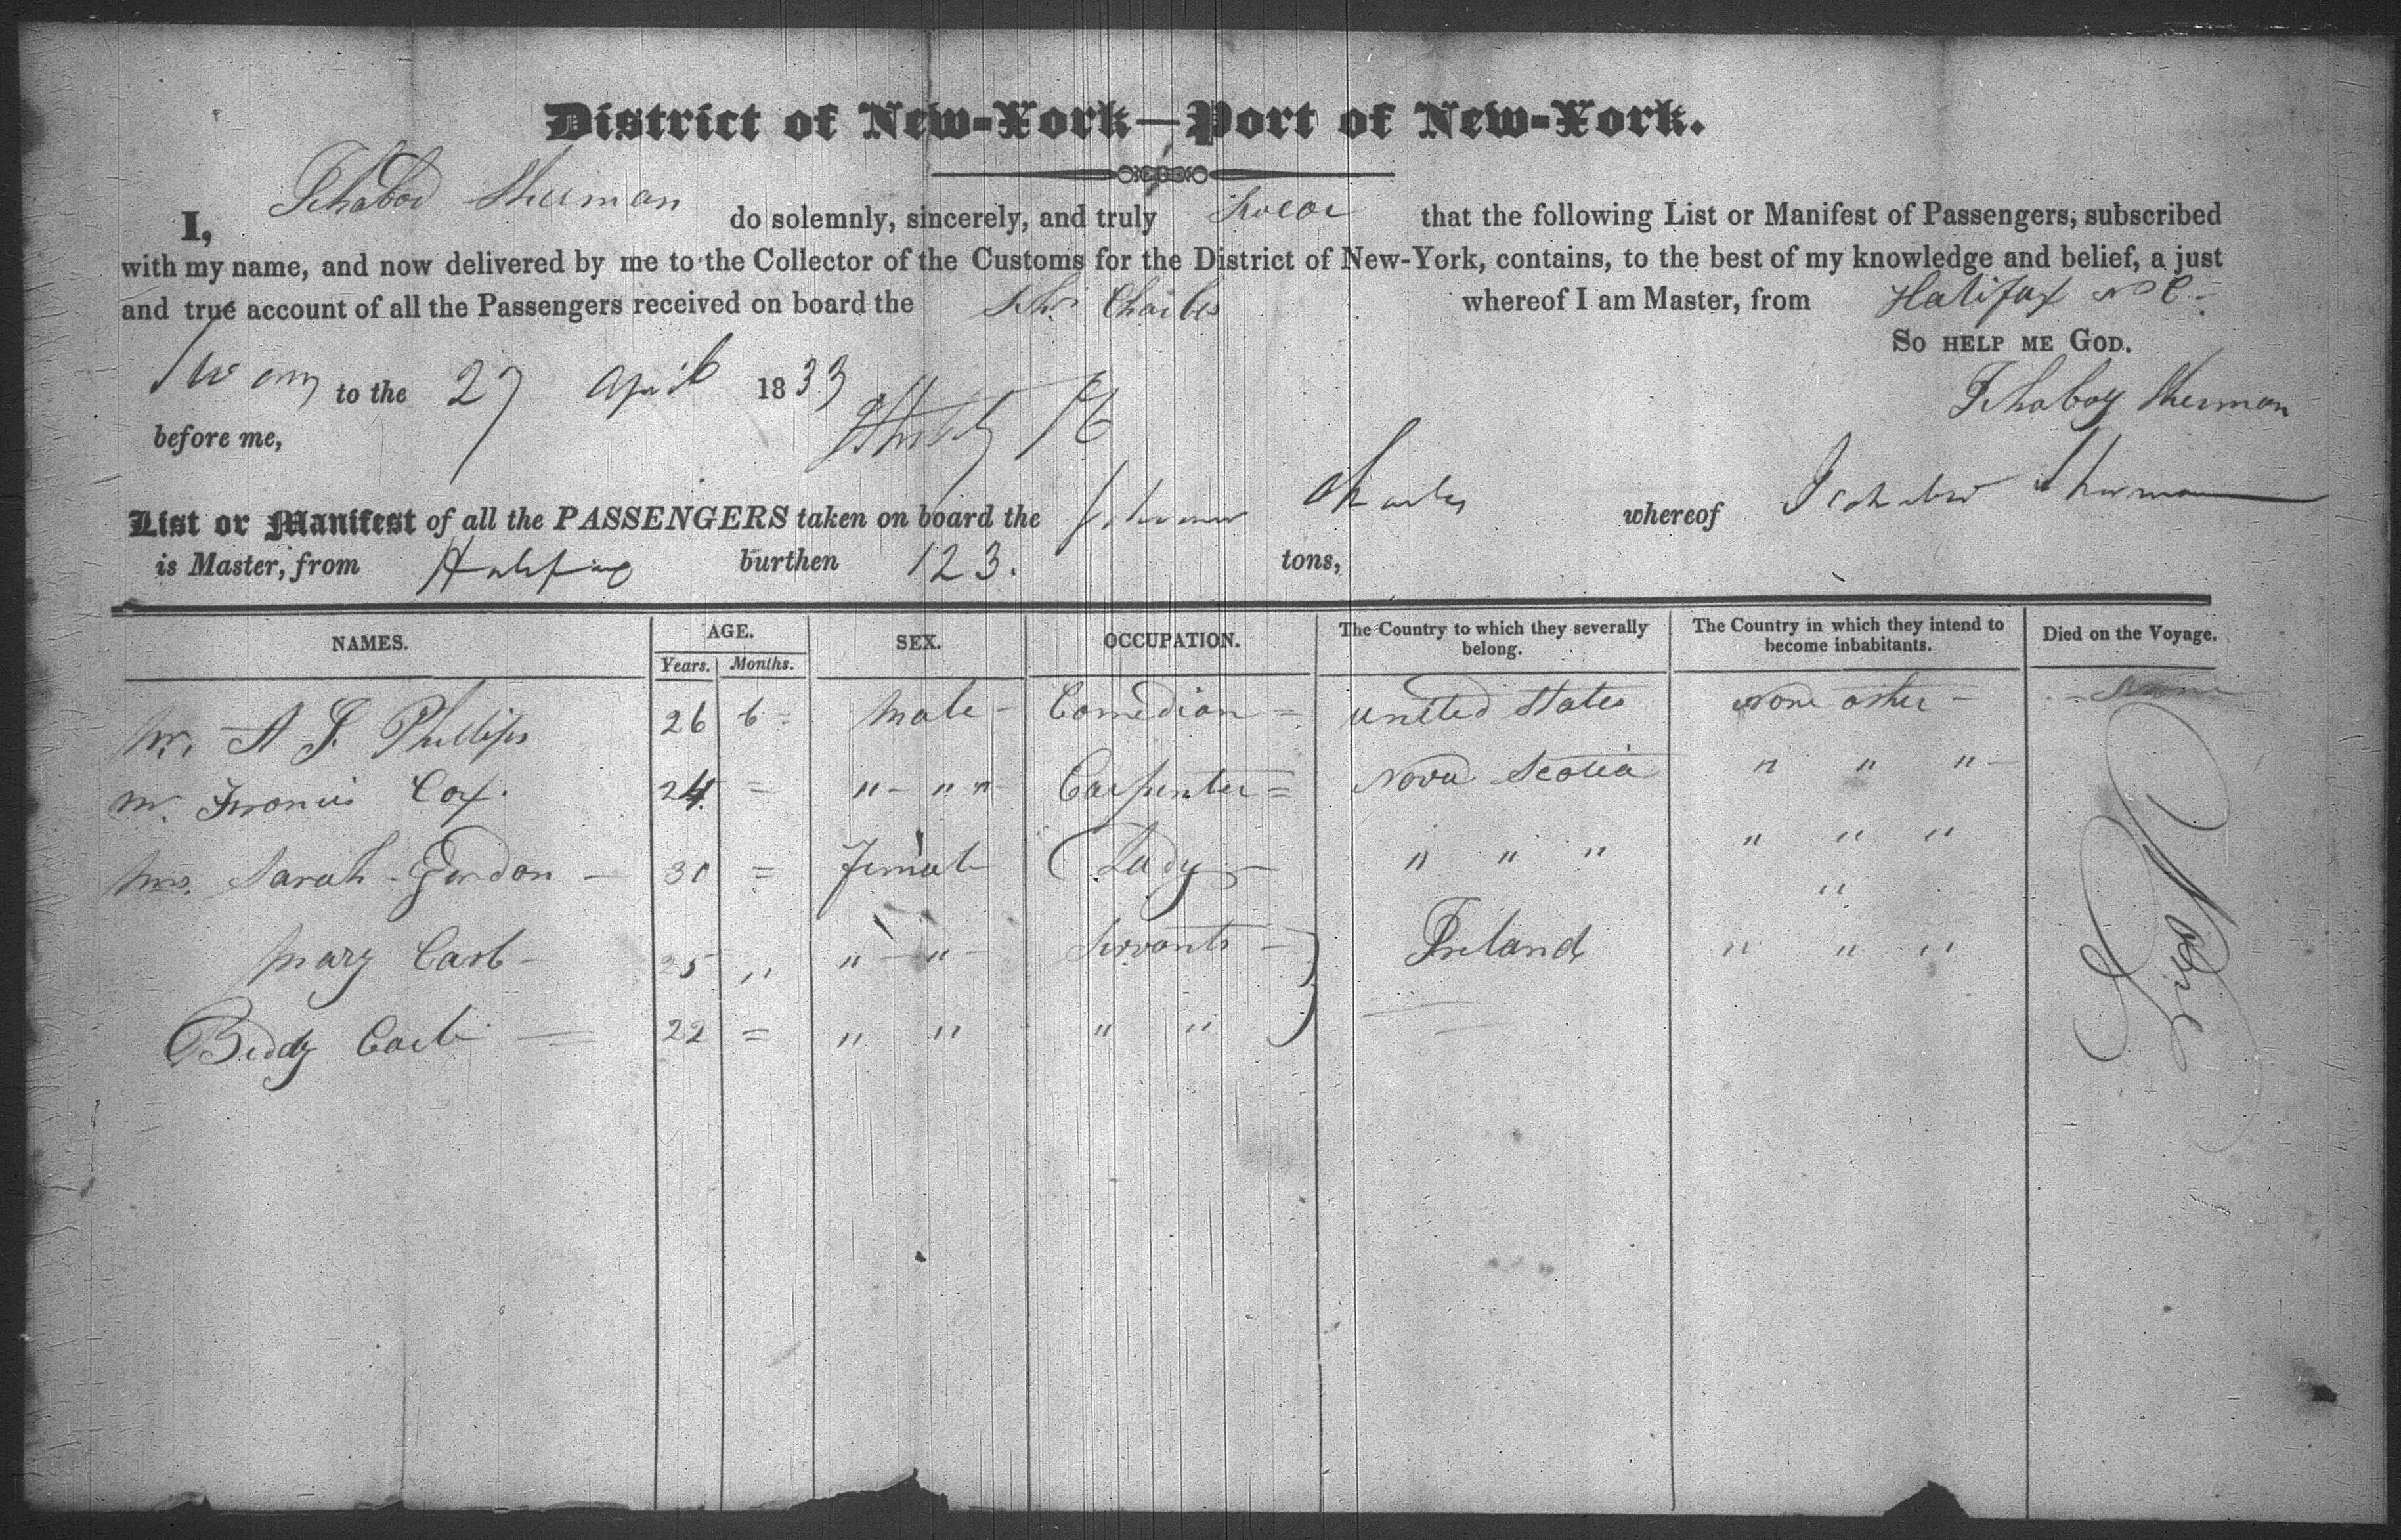 District of New-York—Port of New-York.
I, Ichabod Sherman do solemnly, sincerely, and truly Swear that the following List or Manifest of Passengers, subscribed
with my name, and now delivered by me to the Collector of the Customs for the District of New-York, contains, to the best of my knowledge and belief, a just
and true account of all the Passengers received on board the Schr Charles whereof I am Master, from Halifax
So HELP ME GOD.
to the 27 April 1833
Ichabod Sherman
before me,
List or Manifest of all the PASSENGERS taken on board the Schooner Charles whereof Ichabod Sherman
is Master, from Halifax burthen 123. tons,
NAMES. AGE. SEX. OCCUPATION. The Country to which they severally belong. The Country in which they intend to become inhabitants. Died on the Voyage.
Years. Months.
Mr. A J. Phillips 26 6 = Male - Comedian = United States None other - None
Mr. Francis Cox. 24 = " - " " Carpenter = Nova Scotia " " " -
Mrs. Sarah - Gordon - 30 = Female Lady - " " " " " "
"
Mary - 25 " " - " - Servants - Ireland " " "
Biddy = 22 = " " " "